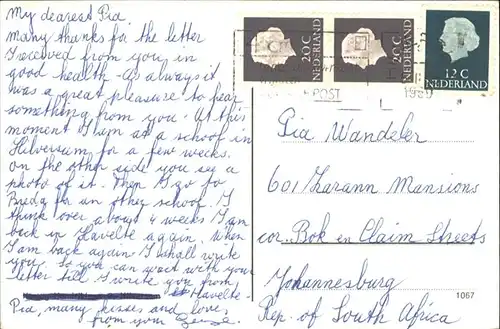 My dearest Pia,
Many thanks for the letter
I received from you in
good health. As always it
was a great pleasure to hear
something from you. At this
moment I am at a school in
Hilversum for a few weeks.
On the other side you see a
photo of it. Then I go to
Breda for an other school. I
think over about 4 weeks I am
back in Havelte again. When
I am back again I shall write
you. So you can wait with your
letter till I write you from
Havelte.
Pia, many kisses and love,
from your
20 C
NEDERLAND
20 C
NEDERLAND
12 C
NEDERLAND
POST
Pia Wandeler
601 Zarann Mansions
cor. Bok en Claim Streets
Johannesburg
Rep. of South Africa
1067